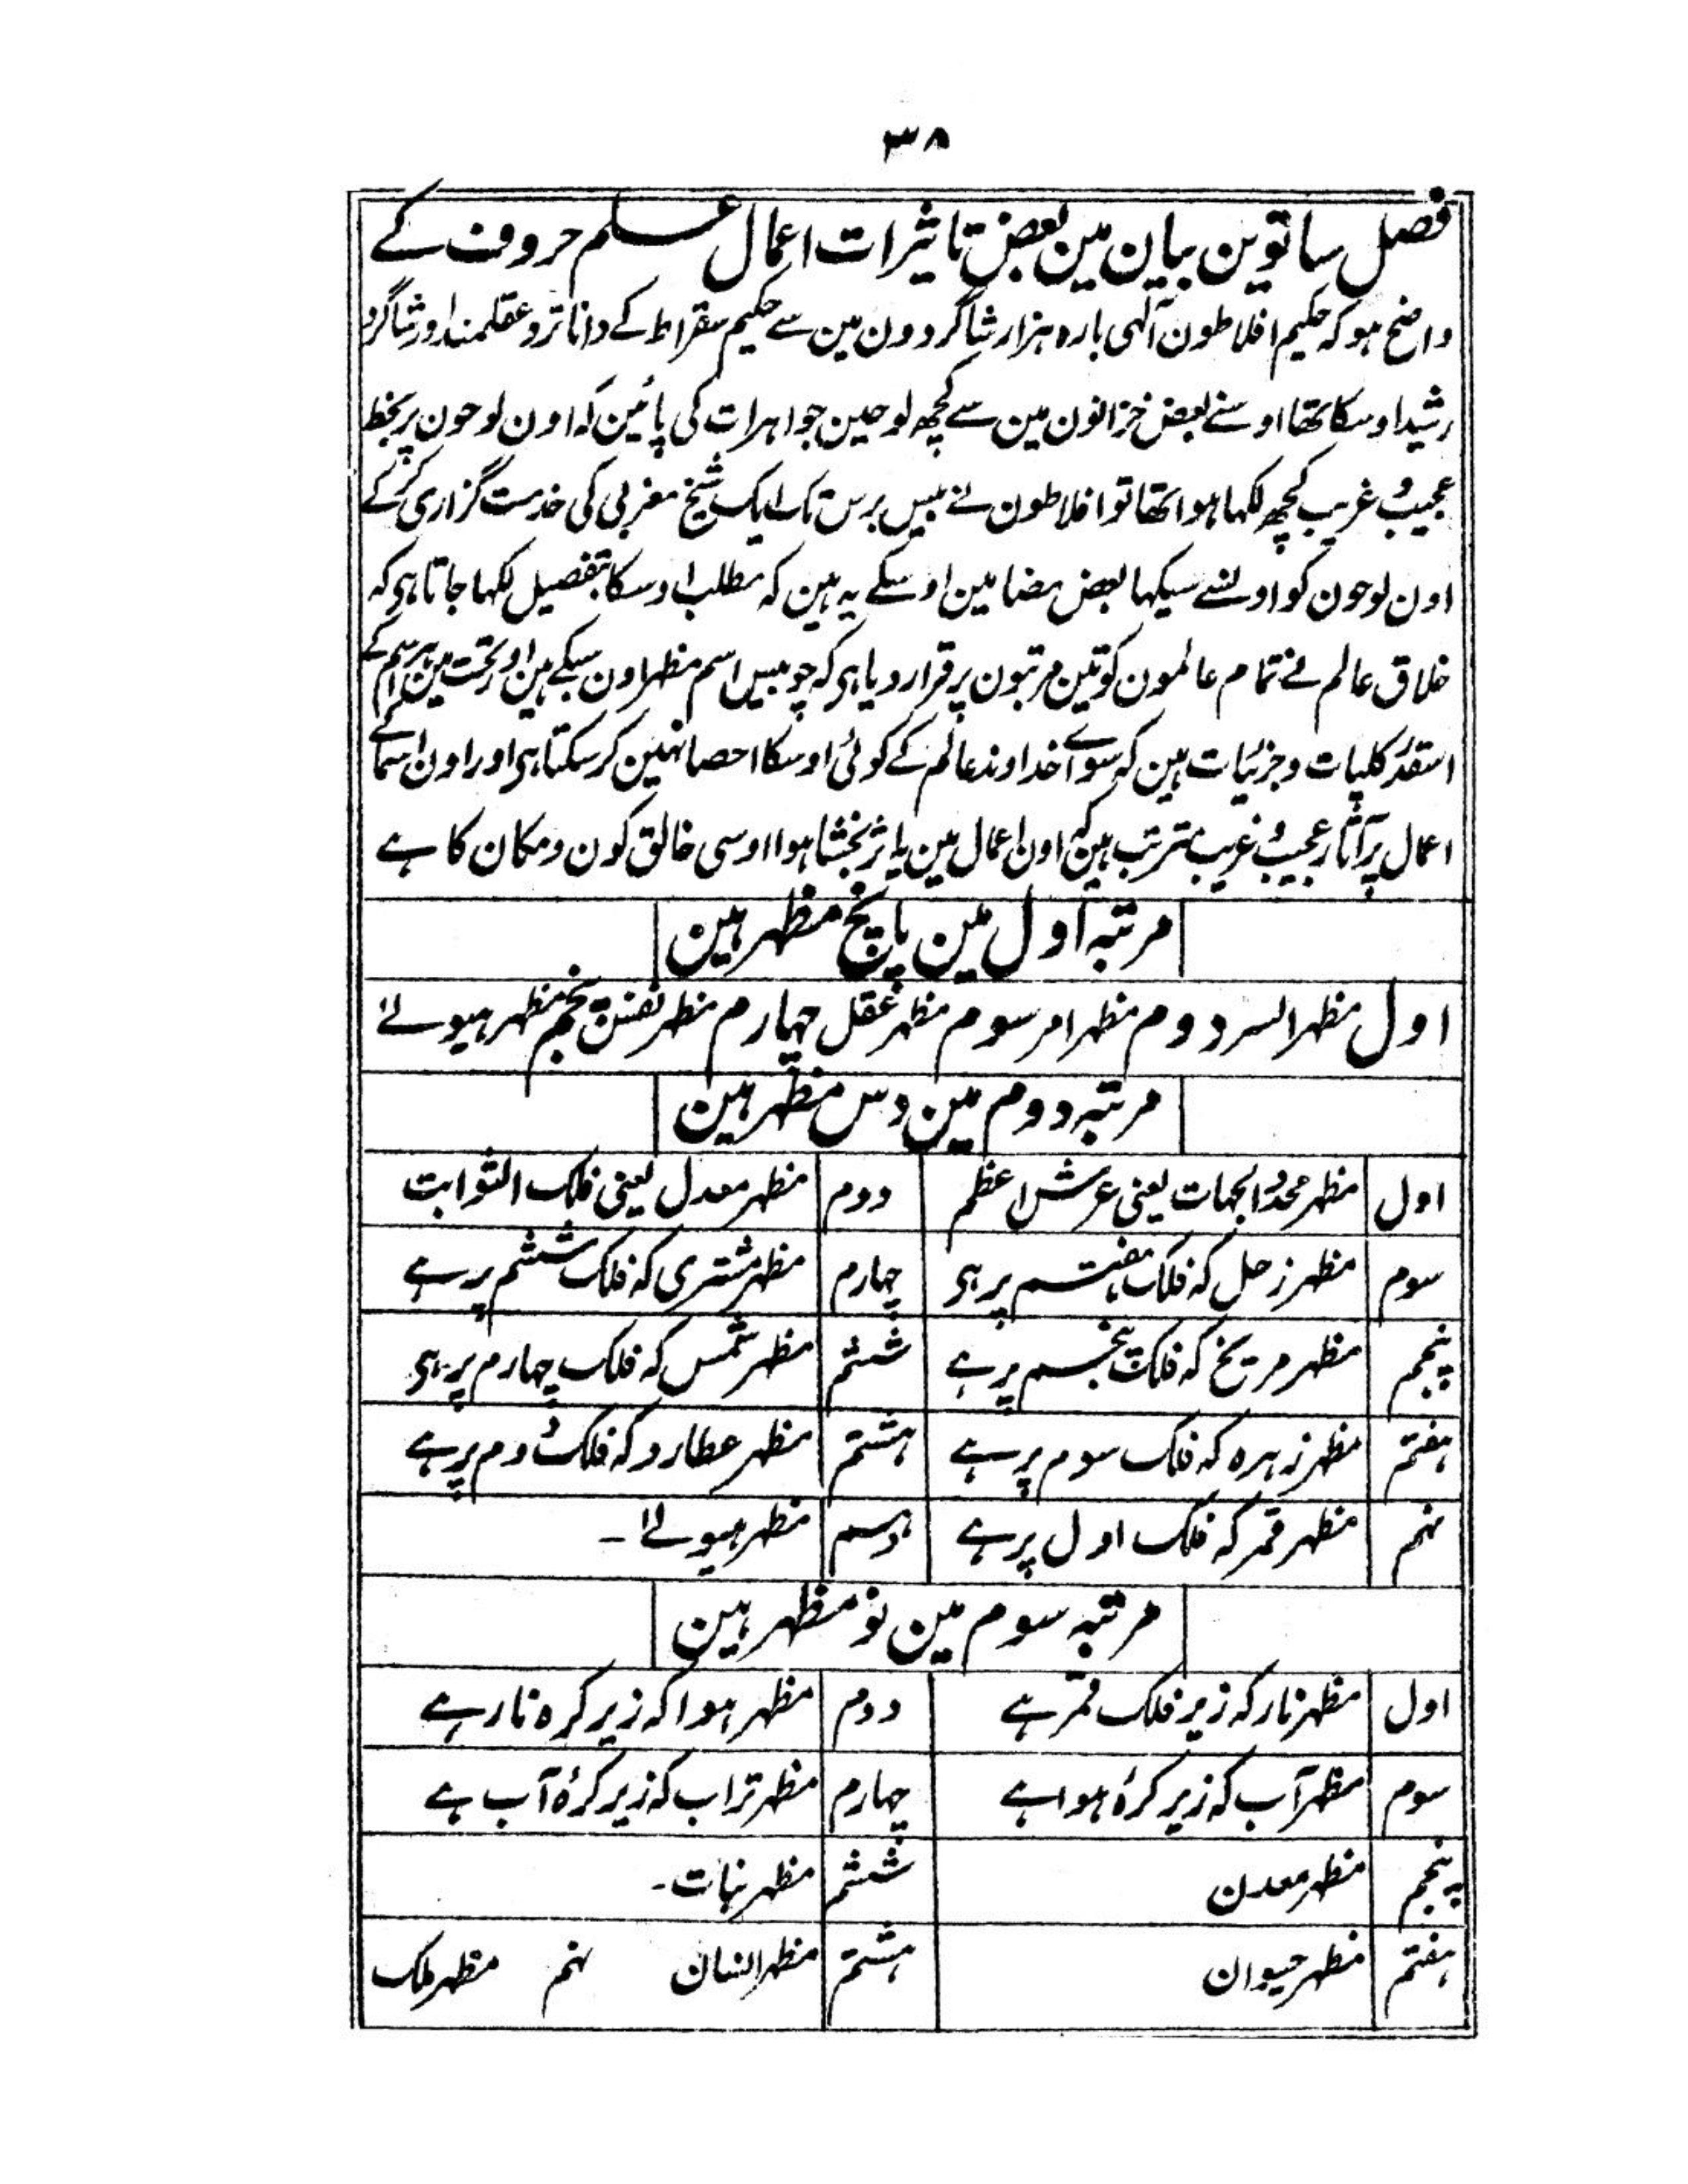 ۳۸
فصل ساتوین بیان مین بعض تاثیرات اعمال علم حروف کے
واضح ہو کہ حکیم افلاطون آلہی بارہ ہزار شاگردون مین سے حکیم سقراط کے دانا تر و عقلمند اور شاگرد
رشید اوسکا تھا اوسنے بعض خزانون مین سے کچھ لوحین جواہرات کی پائین کہ اون لوحون پر بخط
عجیب و غریب کچھ لکہا ہوا تھا تو افلاطون نے بیس برس تک ایک شیخ مغربی کی خدمت گزاری کر کے
اون لوحون کو اوسنے سیکہا بعض مضامین اوسکے یہ ہین کہ مطلب اوسکا بتفصیل لکہا جاتا ہی کہ
خلاق عالم نے تمام عالمون کو تین مرتبون پر قرار دیا ہی کہ چوبیس اسم مظہر اون سبکے ہین اور تحت مین ہر اسم کے
اسقدر کلیات و جزئیات ہین کہ سوائے خداوند عالم کے کوئی اوسکا احصا نہین کر سکتا ہی اور اون اسما کے
اعمال پر آثار عجیب و غریب مترتب ہین کہ اون اعمال مین یہ اثر بخشا ہوا اوسی خالق کون و مکان کا ہے
مرتبہ اول مین پانچ مظہر ہین
اول مظہر السر دوم مظہر امر سوم مظہر عقل چہارم مظہر نفس پنجم مظہر ہیولے
مرتبہ دوم مین دس مظہر ہین
اول مظہر محدد الجہات یعنی عرش اعظم دوم مظہر معدل یعنی فلک الثوابت
سوم مظہر زحل کہ فلک ہفتم پر ہی چہارم مظہر مشتری کہ فلک ششم پر ہے
پنجم مظہر مریخ کہ فلک پنجم پر ہے ششم مظہر شمس کہ فلک چہارم پر ہی
ہفتم مظہر زہرہ کہ فلک سوم پر ہے ہشتم مظہر عطارد کہ فلک دوم پر ہے
نہم مظہر قمر کہ فلک اول پر ہے دہم مظہر ہیولے ۔
مرتبہ سوم مین نو مظہر ہین
اول مظہر نار کہ زیر فلک قمر ہے دوم مظہر ہوا کہ زیر کرہ نار ہے
سوم مظہر آب کہ زیر کرۂ ہوا ہے چہارم مظہر تراب کہ زیر کرۂ آب ہے
پنجم مظہر معدن ششم مظہر نبات ۔
ہفتم مظہر حیوان ہشتم مظہر انسان نہم مظہر ملک